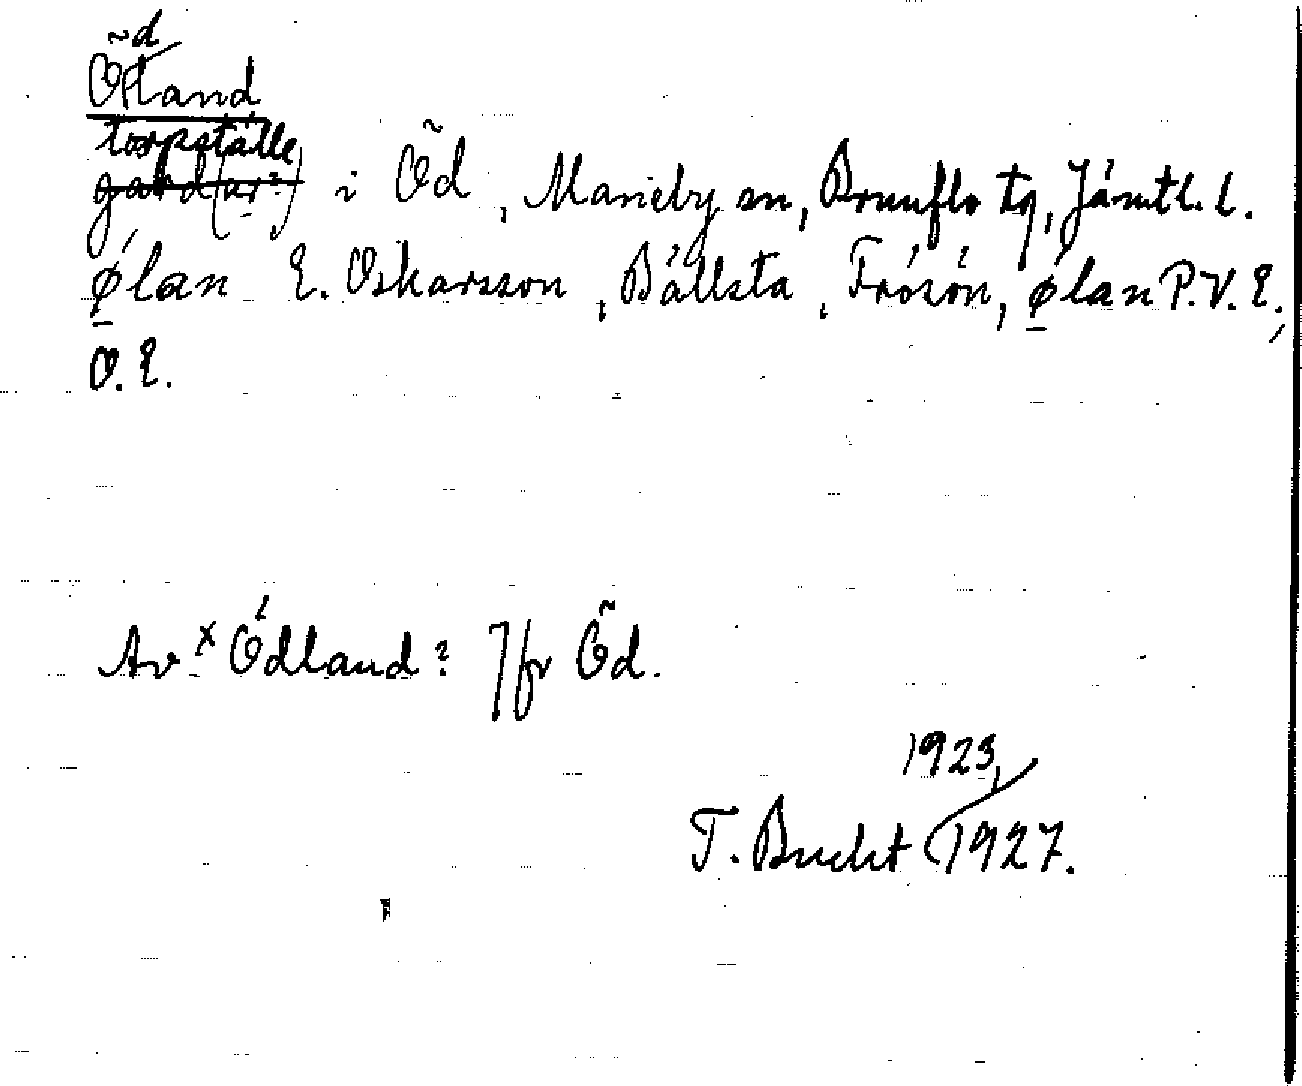 Ödland
torpställe
gård(ar?) i Öd, Marieby sn, Brunflo tg, Jämtl. l.
ǿlan E. Oskarsson, Bällsta, Frösön, ǿlan P.V.E.,
O.E.
Av × Ödland? Jfr Öd.
1923,
T. Bucht 1927.